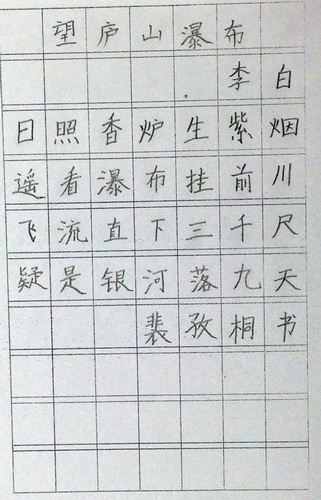 望庐山瀑布
李白
日照香炉生紫烟
遥看瀑布挂前川
飞流直下三千尺
疑是银河落九天
裴孜桐书